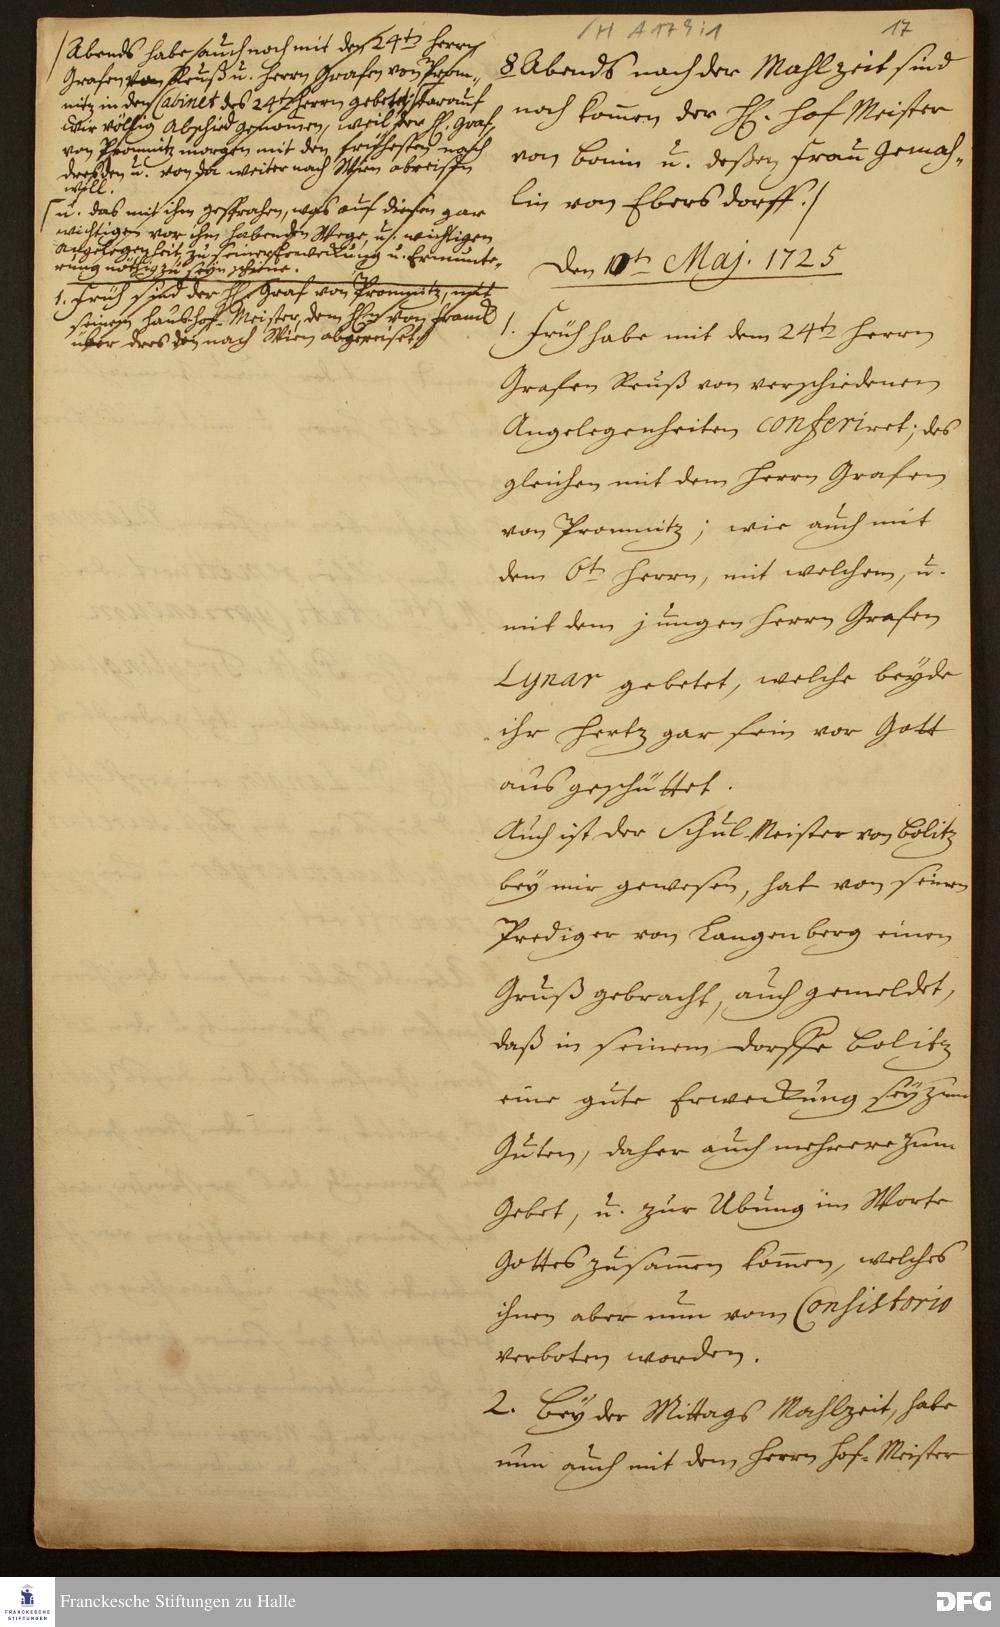 /H A 179:1
17
/Abends habe auch noch mit dem 24tn Herrn
Grafen von Reuß u. Herrn Grafen von Prom-
nitz in dem Cabinet des 24tn Herrn gebetet; darauf
wir völlig Abschied genommen, weil der H. Graf
von Promnitz morgen mit den frühesten nach
Dresden u. von da weiter nach Wien abreisen
will.
u. das mit ihm gesprochen, was auf diesen gar
wichtigen vor ihm habenden Wege, u. wichtigen
Angelegenheit, zu seiner Erweckung u. Ermunte-
rung nöthig zu seyn schiene.
1. Früh sind der H. Graf von Promnitz, mit
seinem Haus-Hof-Meister, dem H. von
über Dresden nach Wien abgereiset.
8. Abends nach der Mahlzeit sind
noch kom̄en der H. Hof Meister
von Bonin u. deßen Frau Gemah-
lin von Ebersdorff./
Den 10tn Maj. 1725
1. Früh habe mit dem 24tn Herrn
Grafen Reuß von verschiedenen
Angelegenheiten conferiret; des
gleichen mit dem Herrn Grafen
von Promnitz; wie auch mit
dem 6tn Herrn, mit welchem, u.
mit dem jungen Herrn Grafen
Lynar gebetet, welche beyde
ihr Hertz gar fein vor Gott
ausgeschüttet.
Auch ist der Schul-Meister von Bolitz
bey mir gewesen, hat von seinen
Prediger von Langenberg einen
Gruß gebracht, auch gemeldet,
daß in seinem Dorffe Bolitz
eine gute Erweckung sey zum
Guten, daher auch mehrere zum
Gebet, u. zur Ubung im Worte
Gottes zusam̄en kom̄en, welches
ihnen aber nun vom Consistorio
verboten worden.
2. Bey der Mittags Mahlzeit, habe
nun auch mit dem Herrn Hof-Meister
FRANCKESCHE
STIFTUNGEN
Franckesche Stiftungen zu Halle
DFG